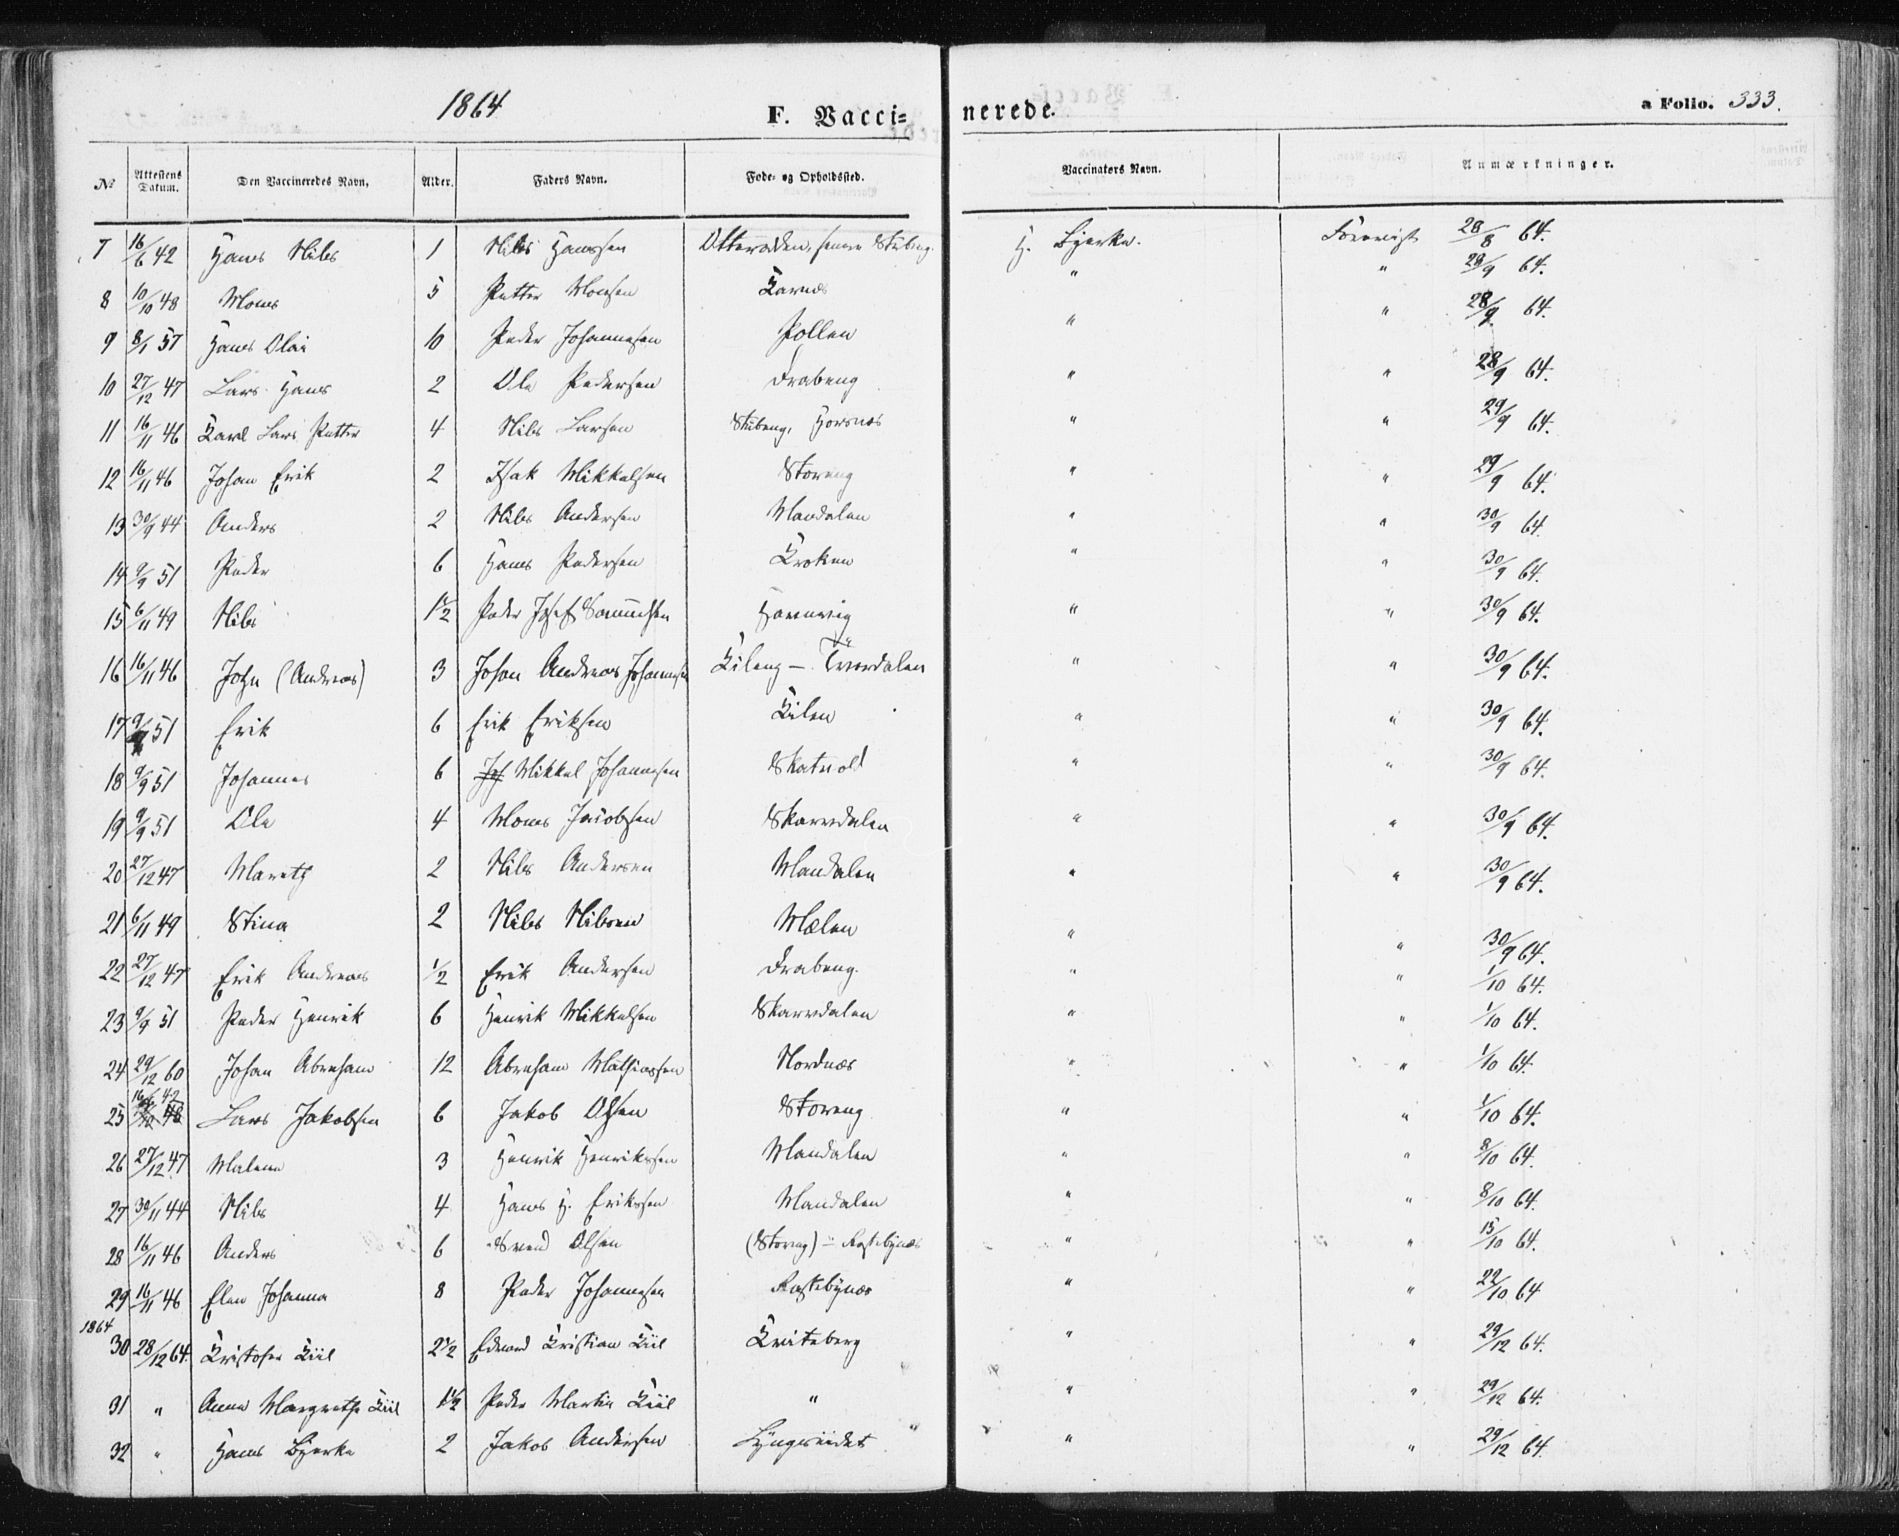 1864 F. Vacci= nerede. a Folio. 333.
№ Attestens Datum. Den Vaccineredes Navn. Alder. Faders Navn. Føde- og Opholdssted. Vaccinators Navn. Anmærkninger.
7 16/6 42 Hans Nils 1 Nils Hanssen Otteraaden, senere Stubeng. H. Bjerke. Forevist 28/8 64.
8 10/10 48 Mons 5 Petter Monsen Karnes " " 28/9 64.
9 8/1 57 Hans Olai 10 Peder Johannesen Pollen " " 28/9 64.
10 27/12 47 Lars Hans 2 Ole Pedersen Drabeng " " 28/9 64.
11 16/11 46 Karl Lars Petter 4 Nils Larsen Stubeng, Horsnes " " 29/9 64.
12 16/11 46 Johan Erik 2 Isak Mikkelsen Storeng " " 29/9 64.
13 30/9 44 Anders 2 Nils Andersen Mandalen " " 30/9 64
14 9/9 51 Peder 6 Hans Pedersen Kroken " " 30/9 64.
15 6/11 49 Nils 1½ Peder Josef Samuelsen Havnvig " " 30/9 64.
16 16/11 46 John (Andreas) 3 Johan Andreas Johannesen Kileng — Tverdalen " " 30/9 64.
17 9/9 51 Erik 6 Erik Eriksen Kilen " " 30/9 64.
18 9/9 51 Johannes 6 Mikkel Johannesen Skatvold " " 30/9 64.
19 9/9 51 Ole 4 Mons Jacobsen Skarvdalen " " 30/9 64.
20 27/12 47 Mareth 2 Nils Andersen Mandalen " " 30/9 64.
21 6/11 49 Stina 2 Nils Nilsen Mælen " " 30/9 64.
22 27/12 47 Erik Andreas ½ Erik Andersen Drabeng. " " 1/10 64.
23 9/9 51 Peder Henrik 6 Henrik Mikkelsen Skarvdalen " " 1/10 64.
24 29/12 60 Johan Abraham 12 Abraham Mathiassen Nordnæs " " 1/10 64.
25 16/6 42 Lars Jakobsen 6 Jakob Olsen Storeng " " 1/10 64.
26 27/12 47 Malene 3 Henrik Henriksen Mandalen " " 8/10 64.
27 30/11 44 Nils 4 Hans H. Erikssen Mandalen " " 8/10 64.
28 16/11 46 Anders 6 Svend Olsen (Storeng) — Rastebynes " " 15/10 64.
29 16/11 46 Elen Johanna 8 Peder Johannesen Rastebynæs " " 22/10 64
1864
30 28/12 64. Kristofer Kiil 2½ Edvard Kristian Kiil Kviteberg " " 29/12 64.
31 " Anne Margrethe Kiil 1½ Peder Martin Kiil " " " 29/12 64.
32 " Hans Bjerke 2 Jakob Andersen Lyngseidet " " 29/12 64.